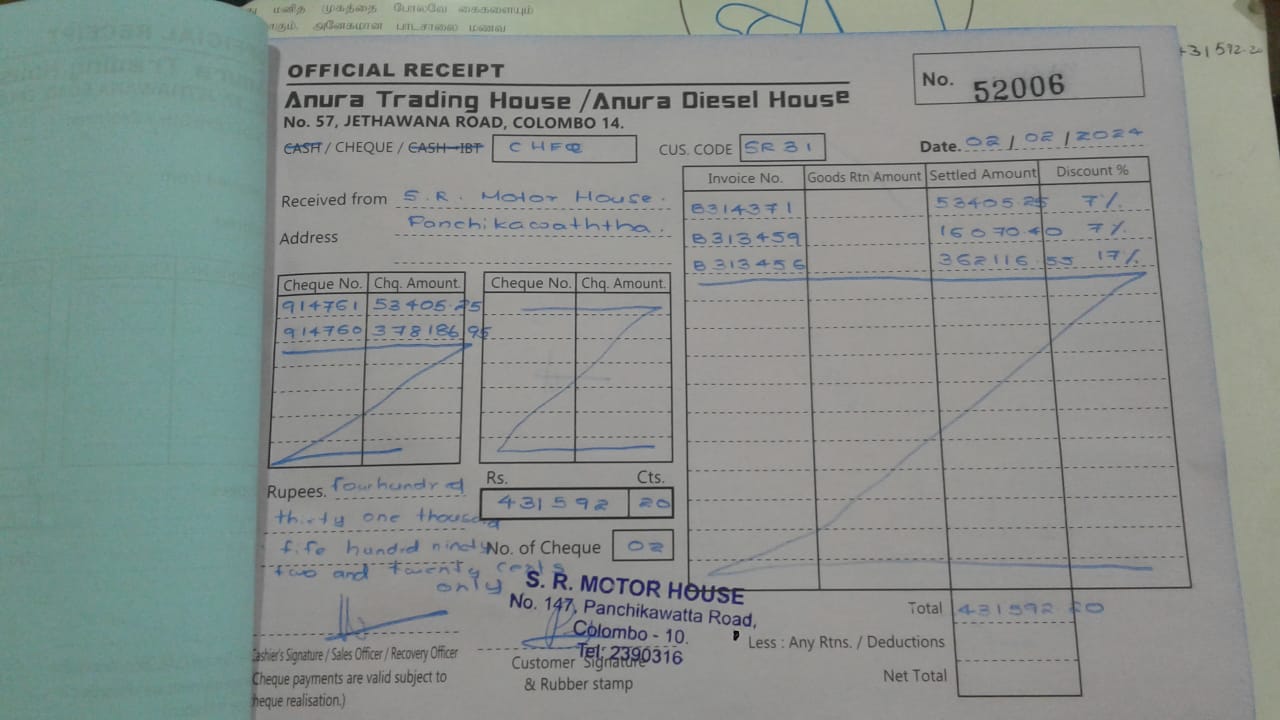 து மனித முகத்தை போலவே கைகளையும்
ாகும். அனேகமான பாடசாலை மணவ
431592.20
OFFICIAL RECEIPT
Anura Trading House / Anura Diesel House
No. 57, JETHAWANA ROAD, COLOMBO 14.
No. 52006
CASH / CHEQUE / CASH-IBT CHEQ CUS. CODE SR 31 Date. 02/02/2024
Received from S.R. Motor House.
Address Panchikawaththa.
Invoice No. Goods Rtn Amount Settled Amount Discount %
B314371 53405.25 7%
B313459 16070.40 7%
B313456 362116.55 17%
Cheque No. Chq. Amount. Cheque No. Chq. Amount.
914761 53405.25
914760 378186.95
Rs. Cts.
431592 20
Rupees. four hundred
thirty one thousand
fife hundrd nindy
two and twenty cents
only
No. of Cheque 02
S. R. MOTOR HOUSE
No. 147, Panchikawatta Road,
Colombo - 10.
Tel: 2390316
Total 431592.20
Less : Any Rtns. / Deductions
Net Total
Cashier's Signature / Sales Officer / Recovery Officer
Customer Signature
& Rubber stamp
Cheque payments are valid subject to
heque realisation.)